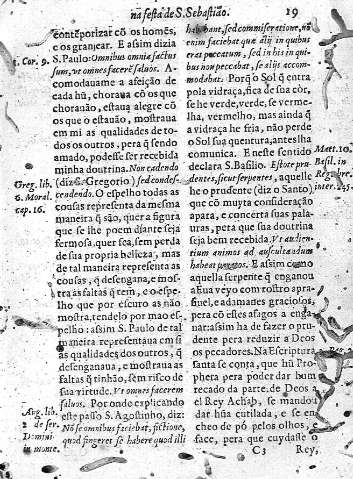 na festa de S. Sebastião. 19
contēporizar cō os homēs,
e os grangear. E assim dizia
S. Paulo: Omnibus omnia factus
sum, ut omnes facerē salvos. A
comodavame a afeição de
cada hũ, chorava cõs os que
choravão, estava alegre cõ os
que o estavão, mostrava
em mi as qualidades de to-
dos os outros, pera q̃ sendo
amado, podesse ser recebida
minha doutrina. Non cadendo
(diz Gregorio) sed condes-
cendendo. O espelho todas as
cousas representa da mesma
maneira q̃ são, quer a figura
que se lhe poem diante seja
fermosa, quer fea, sem perda
de sua propria beleza; mas
de tal maneira representa as
cousas, q̃ desengana, e mos-
tra as faltas q̃ tẽm, e o espe-
lho que por escuro as não
mostra, tendelo por mao es-
pelho: assim S. Paulo de tal
maneira representava em si
as qualidades dos outros, q̃
desenganava, e mostrava as
faltas q̃ tinhão, sem risco de
sua virtude. Ut omnes facerem
salvos. Por onde explicando
este passo S. Agostinho, diz:
Nō se omnibus faciebat, fictione,
quod fingeret se habere quod illi
1. Cor. 9.
Greg. lib.
6. Moral.
cap. 16.
Aug. lib.
2. de ser.
Domini
in monte.
habebant, sed commiseratione, nō
enim faciebat que alij in quibus
eras peccatum, sed in his in qui-
bus non peccabat, se alijs accom-
modabat. Porq̃ o Sol q̃ entra
pola vidraça, fica de sua côr,
se he verde, verde, se verme-
lha, vermelho, mas ainda q̃
a vidraça he fria, não perde
o Sol sua quentura, antes lha
comunica. E neste sentido
declara S. Basilio. Estote pru-
dentes, sicut serpentes, aquelle
he prudente (diz o Santo)
que cō muyta consideração
apara, e concerta suas pala-
uras, pera que sua doutrina
seja bem recebida. Ut audien-
tium animos ad auscultandum
habeat
E assim como
aquella serpente q̃ enganou
a Eva veyo com rostro apra-
sivel, e ademanes graciosos,
pera cō estes afagos a enga-
nar: assim ha de fazer o pru-
dente pera reduzir a Deos
os peccadores. Na Escriptura
santa se conta, que hũ Pro-
pheta pera poder dar hum
recado da parte de Deos a
el Rey Achab, se mandou
dar hũa cutilada, e se en-
cheo de pó pelos olhos, e
face, pera que cuydasse o
C3 Rey,
Matt. 10.
Basil. in
Regul. bre.
inter. 245.